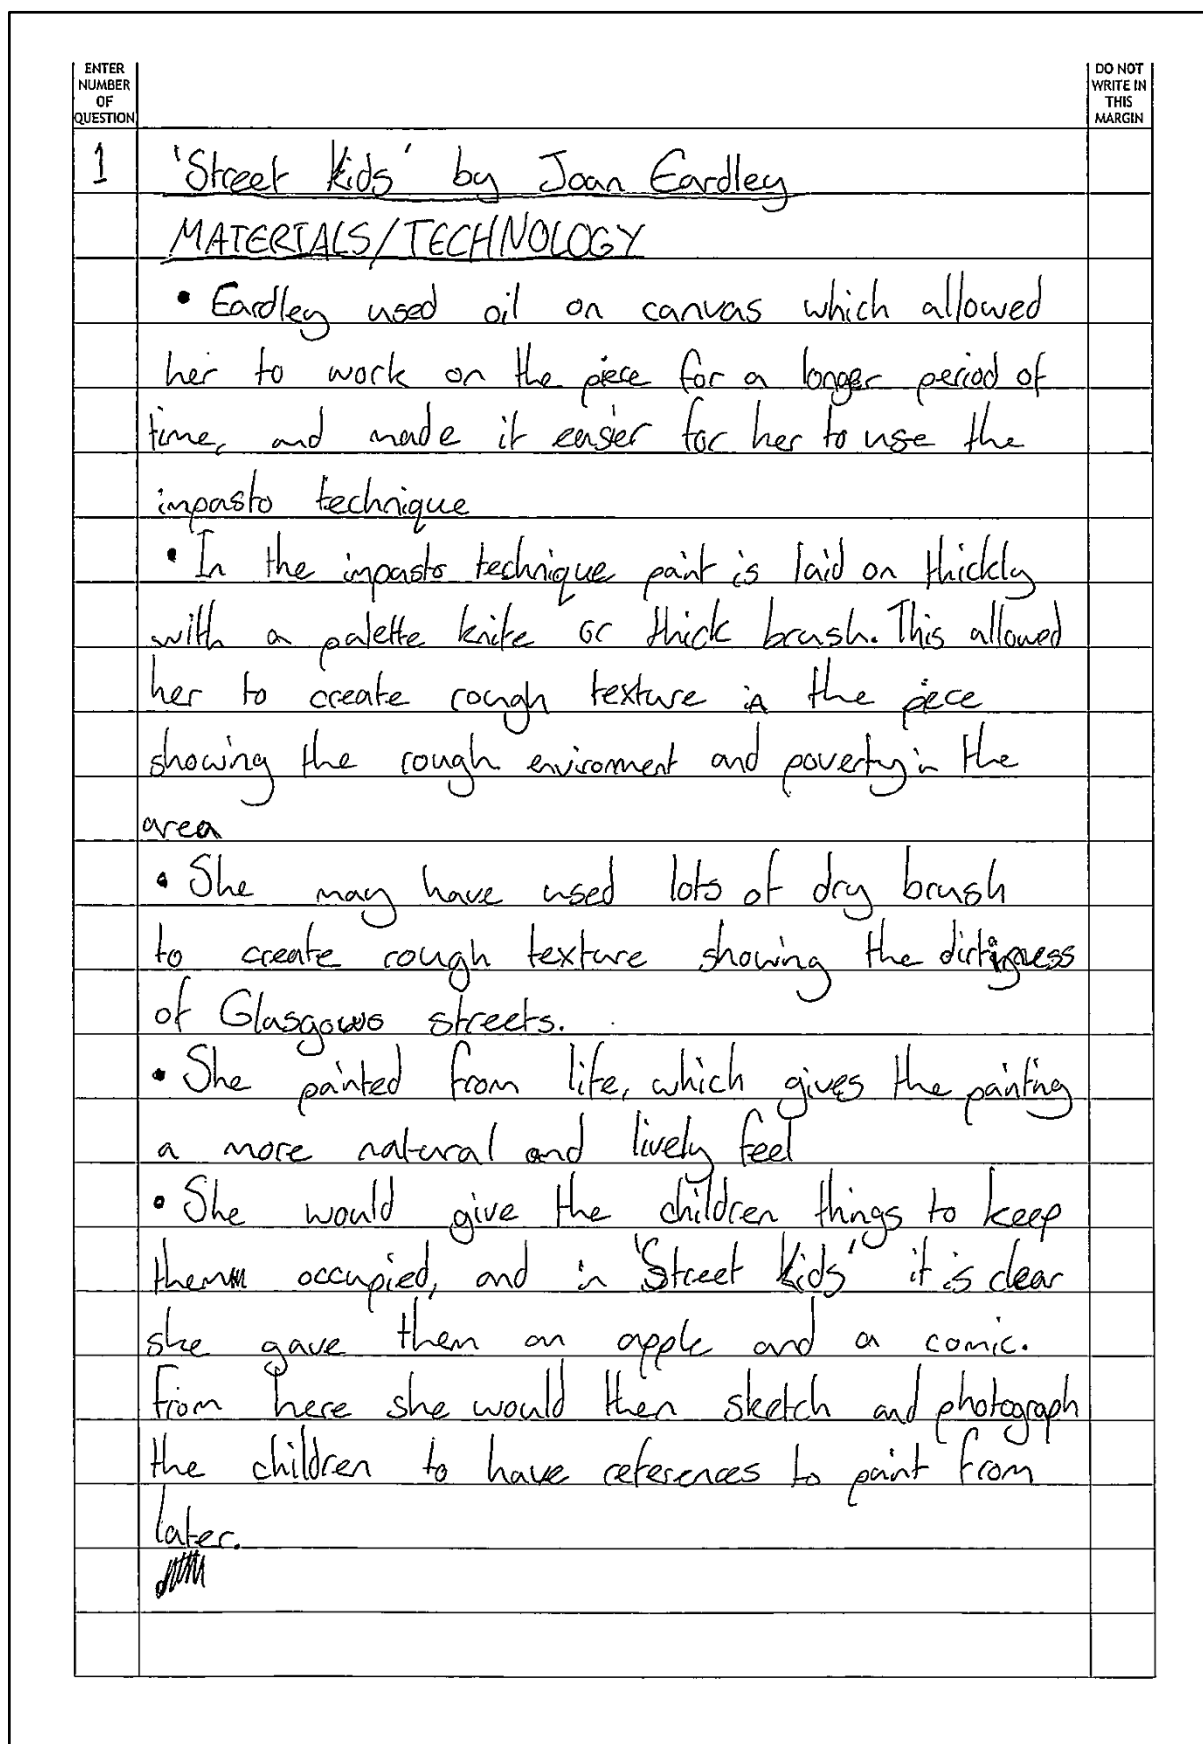 ENTER
NUMBER
OF
QUESTION
DO NOT
WRITE IN
THIS
MARGIN
1
'Street kids' by Joan Eardley
MATERIALS/TECHNOLOGY
• Eardley used oil on canvas which allowed
her to work on the piece for a longer period of
time, and made it easier for her to use the
impasto technique
• In the impasto technique paint is laid on thickly
with a palette knife or thick brush. This allowed
her to create rough texture in the piece
showing the rough enviroment and poverty in the
area
• She may have used lots of dry brush
to create rough texture showing the
of Glasgows streets.
• She painted from life, which gives the painting
a more natural and lively feel
• She would give the children things to keep
them occupied, and in 'Street kids' it is clear
she gave them an apple and a comic.
From here she would then sketch and photograph
the children to have references to paint from
later.